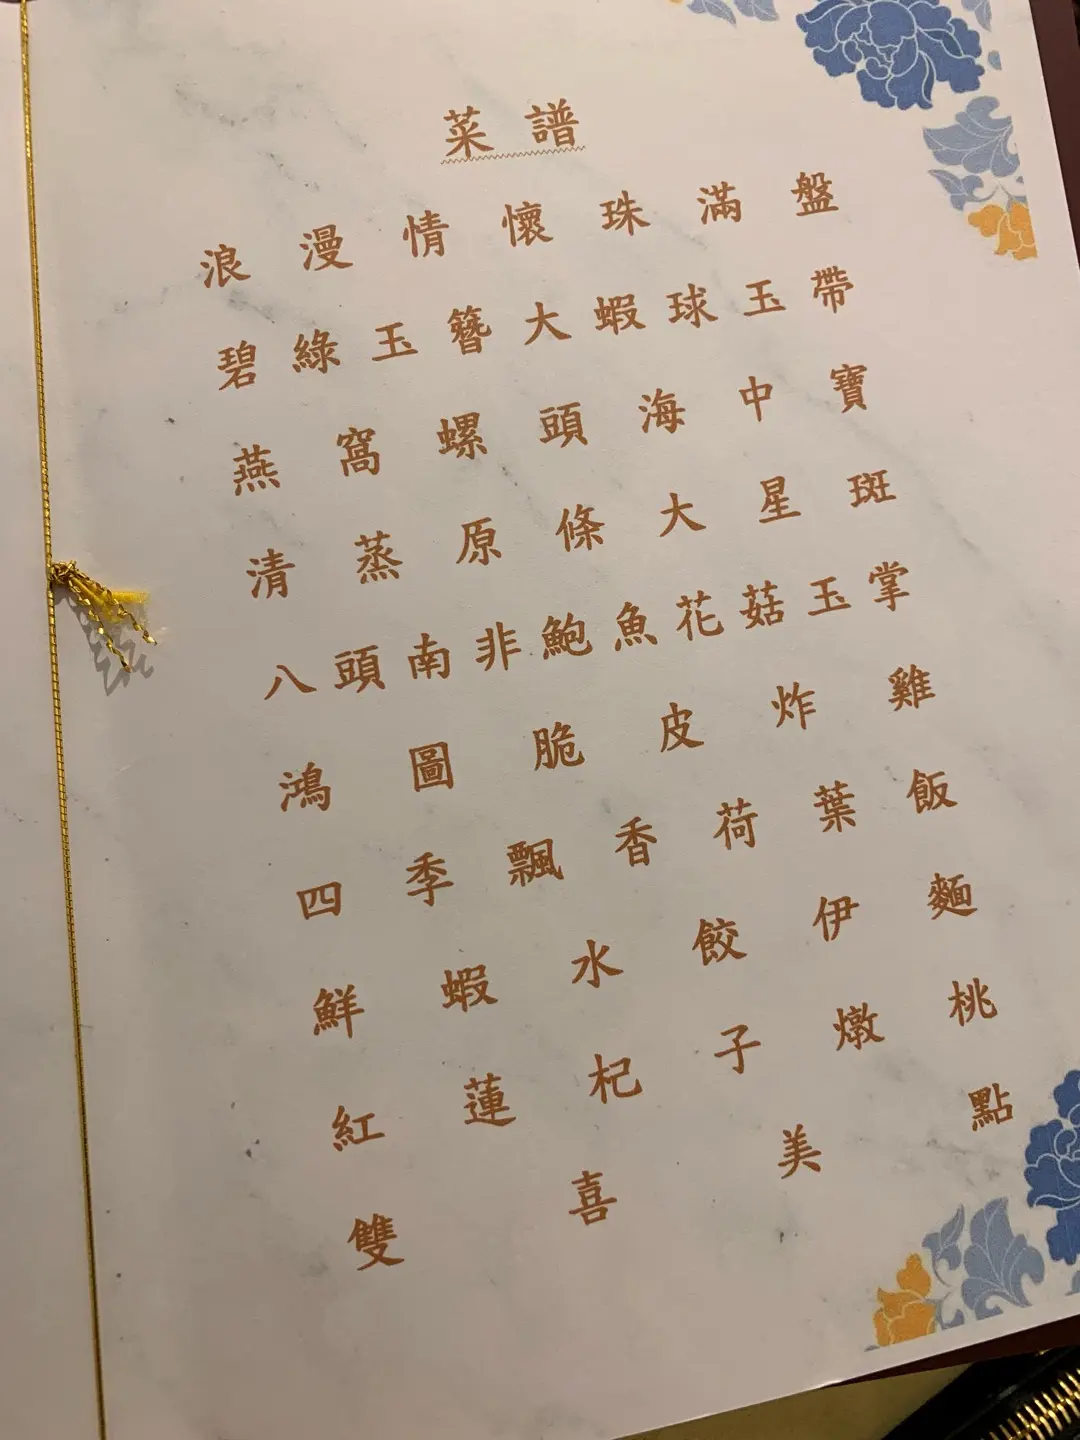 菜譜
浪漫情懷珠滿盤
碧綠玉簪大蝦球玉帶
燕窩螺頭海中寶
清蒸原條大星斑
八頭南非鮑魚花菇玉掌
鴻圖脆皮炸雞
四季飄香荷葉飯
鮮蝦水餃伊麵
紅蓮杞子燉桃
雙喜美點